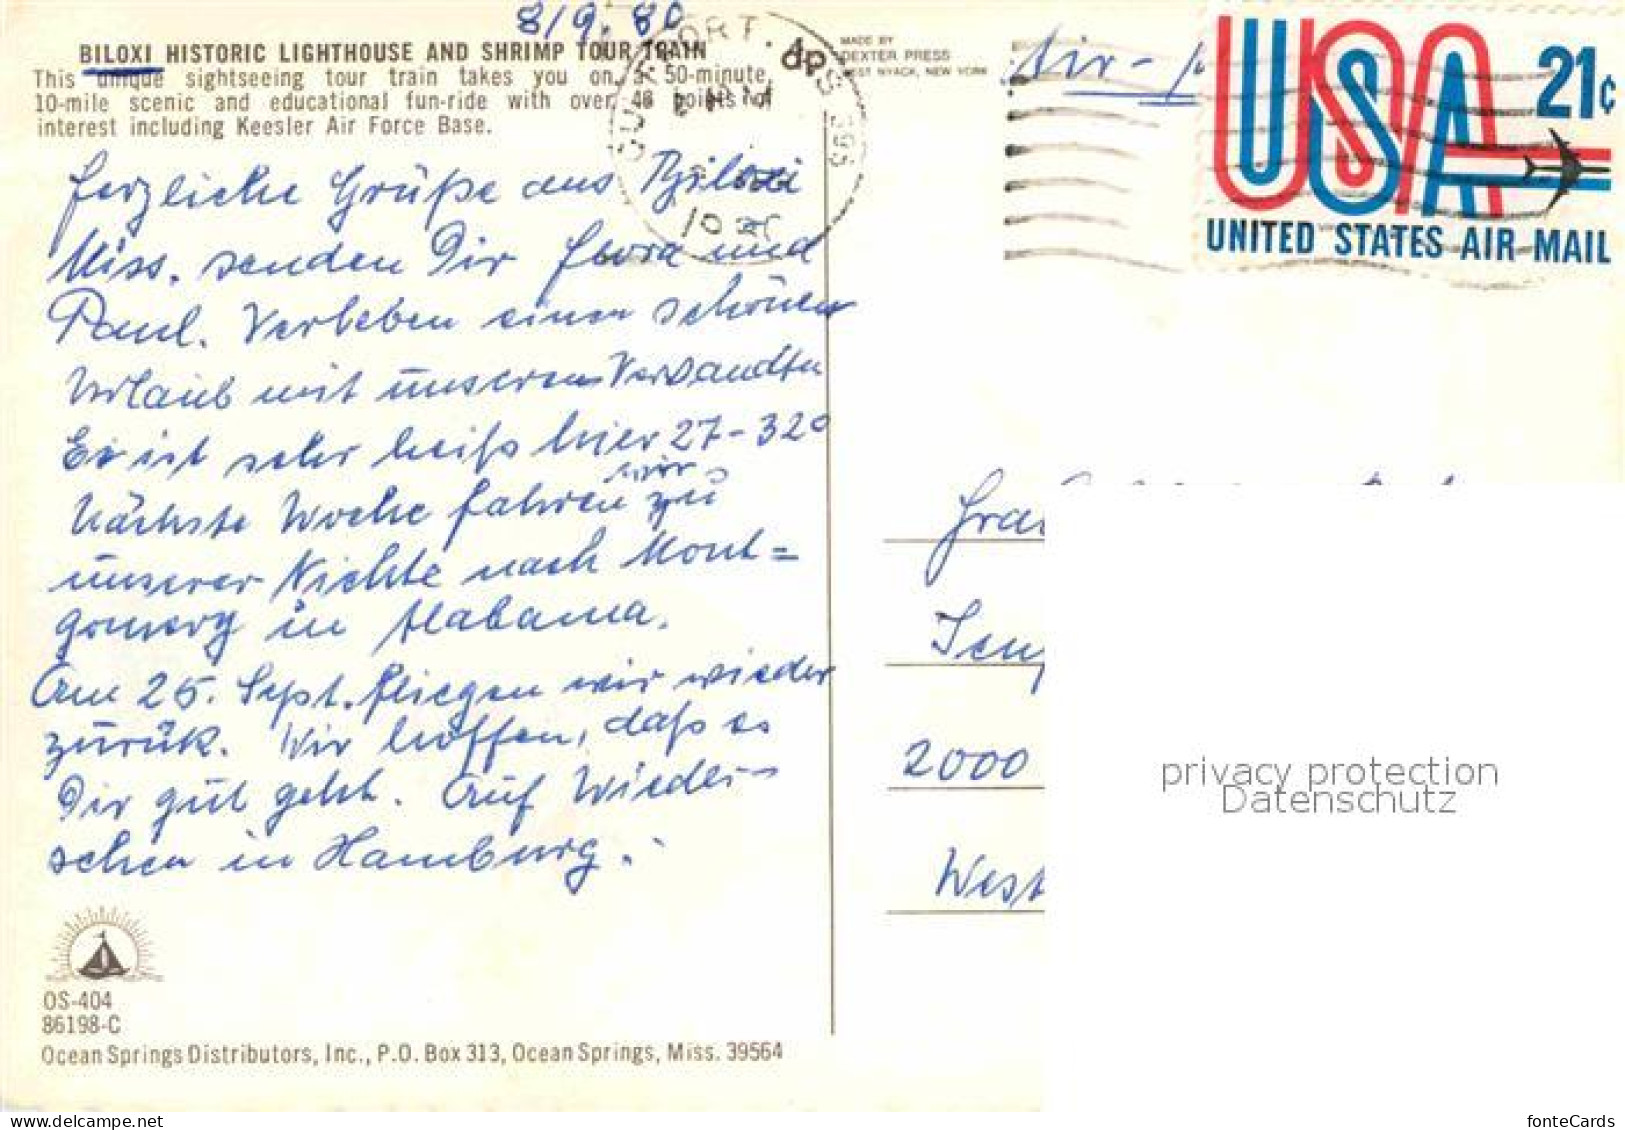 8/9. 80
BILOXI HISTORIC LIGHTHOUSE AND SHRIMP TOUR TRAIN
This unique sightseeing tour train takes you on a 50-minute,
10-mile scenic and educational fun-ride with over 48 points of
interest including Keesler Air Force Base.
MADE BY
DEXTER PRESS
WEST NYACK, NEW YORK
Air-
USA
21c
UNITED STATES AIR MAIL
Herzliche Grüße aus Biloxi
Miss. senden Dir Flora und
Paul. Verleben einen schönen
Urlaub mit unseren Verwandten
Es ist sehr heiß hier 27-32°
Nächste Woche fahren wir zu
unserer Nichte nach Mont=
gomery in Alabama.
Am 25. Sept. fliegen wir wieder
zurück. Wir hoffen, daß es
Dir gut geht. Auf Wieder-
sehen in Hamburg.
2000
West
privacy protection
Datenschutz
OS-404
86198-C
Ocean Springs Distributors, Inc., P.O. Box 313, Ocean Springs, Miss. 39564
www.delcampe.net
fonteCards